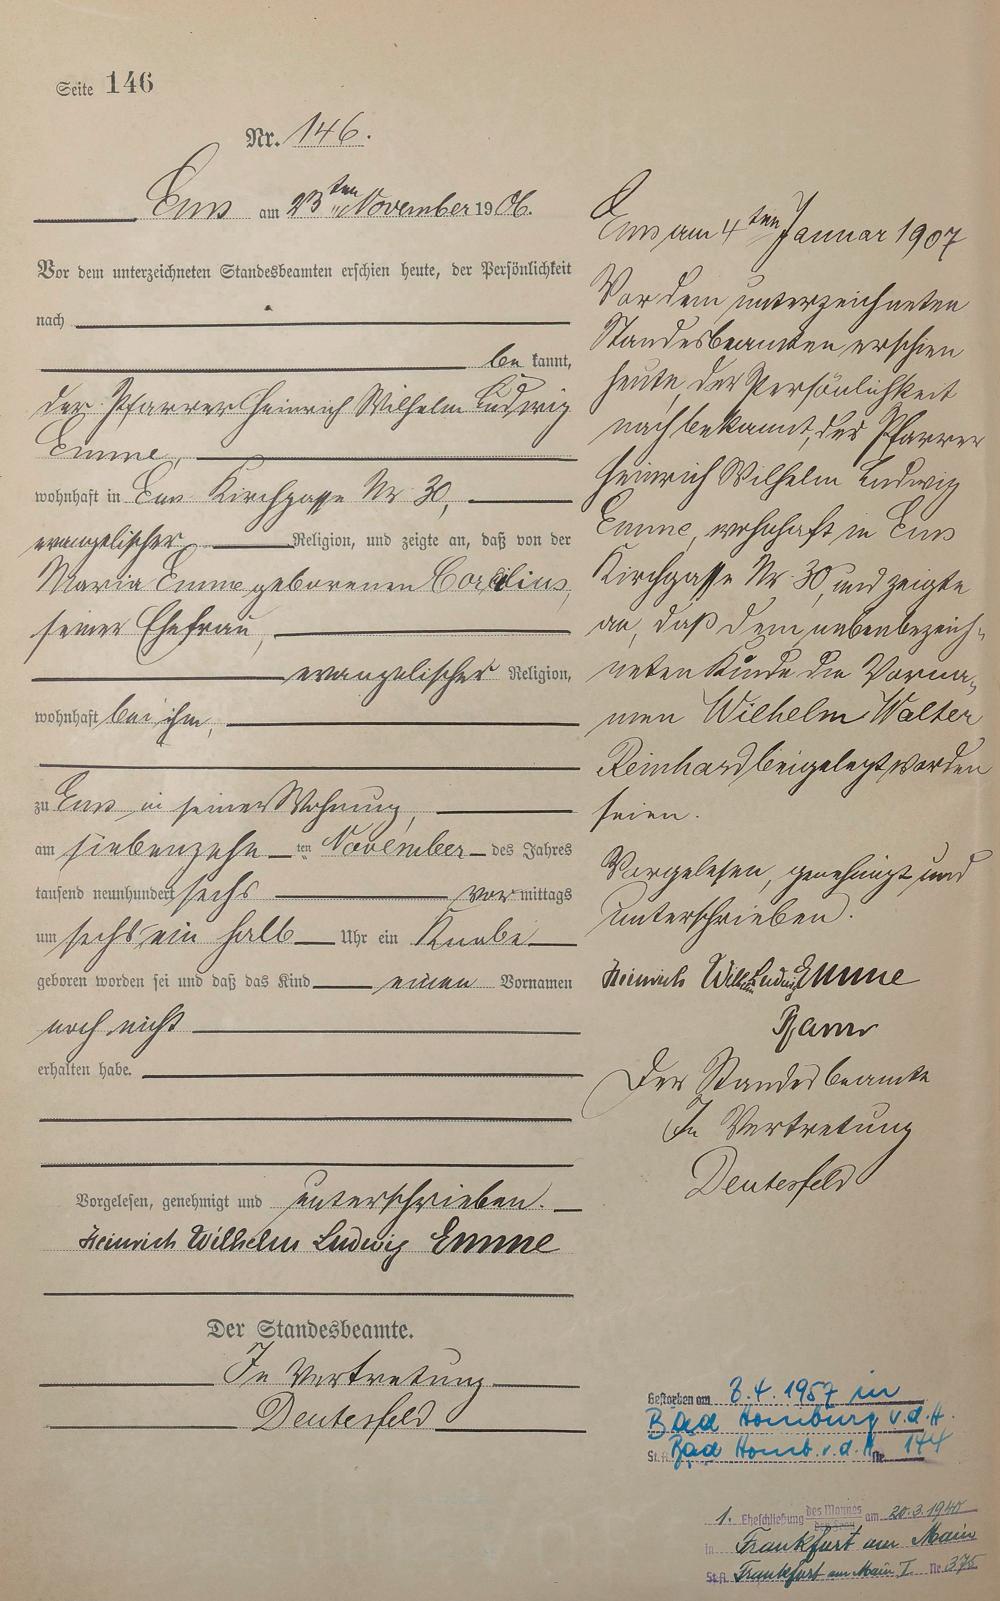 Seite 146
Nr. 146.
Ems am 23ten November 1906.
Vor dem unterzeichneten Standesbeamten erschien heute, der Persönlichkeit
nach
be kannt,
der Pfarrer Heinrich Wilhelm Ludwig
Emme,
wohnhaft in Ems Kirchgasse Nr 30,
evangelischer Religion, und zeigte an, daß von der
Maria Emme geborenen
seiner Ehefrau,
evangelischer Religion,
wohnhaft bei ihm,
zu Ems in seiner Wohnung,
am siebenzehn ten November des Jahres
tausend neunhundert sechs vor mittags
um sechs ein halb Uhr ein Knabe
geboren worden sei und daß das Kind einen Vornamen
noch nicht
erhalten habe.
Vorgelesen, genehmigt und unterschrieben.
Heinrich Wilhelm Ludwig Emme
Der Standesbeamte.
In Vertretung
Deutesfeld
Ems am 4ten Januar 1907
Vor dem unterzeichneten
Standesbeamten erschien
heute, der Persönlichkeit
nach bekannt, der Pfarrer
Heinrich Wilhelm Ludwig
Emme, wohnhaft in Ems
Kirchgasse Nr. 30, und zeigte
an, daß dem nebenbezeich-
neten Kinde die Vorna-
men Wilhelm Walter
Reinhard beigelegt worden
seien.
Vorgelesen, genehmigt und
unterschrieben.
Heinrich Wilhelm Ludwig Emme
Pfarrer
Der Standesbeamte
In Vertretung
Deutesfeld
Gestorben am 3.4.1957 in
Bad Homburg v.d.H.
St.A. Bad Homb. v.d.H. Nr. 144
1. Eheschließung des Mannes am 20.3.1940
der Frau
in Frankfurt am Main
St.A. Frankfurt am Main I Nr. 375